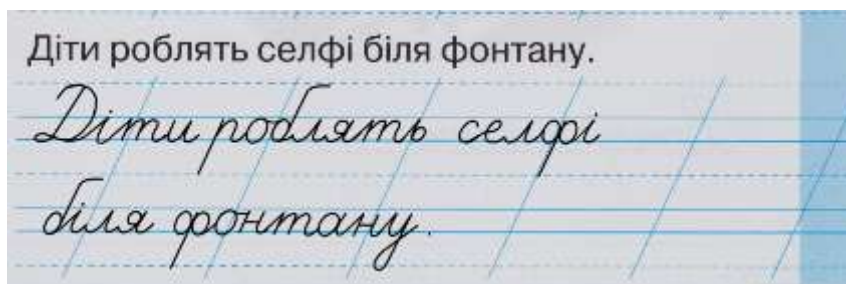 Діти роблять селфі біля фонтану.
Діти роблять селфі
біля фонтану.